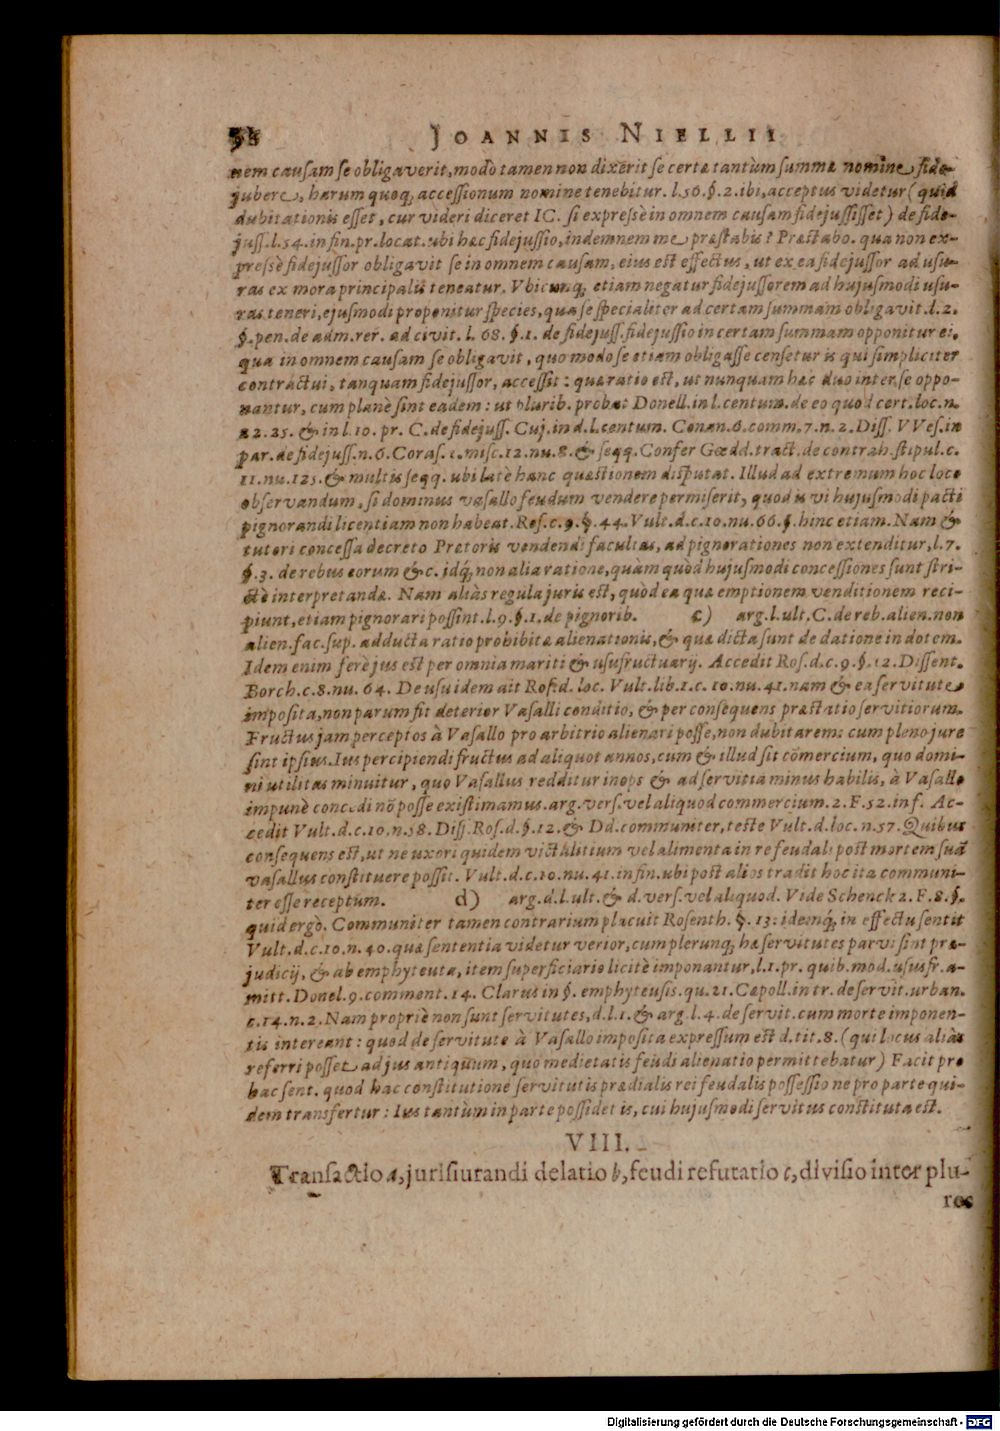 JOANNIS NIELLII
nem causam se obligaverit, modò tamen non dixerit se certæ tantùm summæ nomine fide-
jubere, harum quoq; accessionum nomine tenebitur. l.56.§.2.ibi, acceptus videtur (quid
dubitationis esset, cur videri diceret IC. si expressè in omnem causam fidejussisset) de fide-
juss. l.54. in fin. pr. locat. ubi hæc fidejussio, indemnem me præstabis? Præstabo. qua non ex-
pressè fidejussor obligavit se in omnem causam, eius est effectus, ut ex ea fidejussor ad usu-
ras ex mora principalis teneatur. Vbicunq; etiam negatur fidejussorem ad hujusmodi usu-
ras teneri, ejusmodi proponitur species, qua se specialiter ad certam summam obligavit. l.2.
§.pen. de adm. rer. ad civit. l. 68. §.1. de fidejuss. fidejussio in certam summam opponitur ei,
qua in omnem causam se obligavit, quo modo se etiam obligasse censetur is qui simpliciter
contractui, tanquam fidejussor, accessit: qua ratio est, ut nunquam hæc duo inter se oppo-
nantur, cum planè sint eadem: ut plurib. probat Donell. in l. centum. de eo quod cert. loc. n.
22.25. & in l.10. pr. C. de fidejuss. Cuj. in d. l. centum. Conan. 6. comm. 7. n. 2. Diss. VVes. in
par. de fidejuss. n. 6. Coras. 1. misc. 12. nu. 8. & seqq. Confer Gœdd. tract. de contrah. stipul. c.
11. nu. 125. & multis seqq. ubi latè hanc quæstionem disputat. Illud ad extremum hoc loco
observandum, si dominus vasallo feudum vendere permiserit, quod is vi hujusmodi pacti
pignorandi licentiam non habeat. Ros. c. 9. §. 44. Vult. d. c. 10. nu. 66. §. hinc etiam. Nam &
tutori concessa decreto Prætoris vendendi facultas, ad pignorationes non extenditur, l. 7.
§.3. de rebus eorum & c. idq; non alia ratione, quàm quòd hujusmodi concessiones sunt stri-
ctè interpretandæ. Nam aliàs regula juris est, quòd ea quæ emptionem venditionem reci-
piunt, etiam pignorari possint. l. 9. §. 1. de pignorib. c) arg. l. ult. C. de reb. alien. non
alien. fac. sup. adducta ratio prohibitæ alienationis, & quæ dicta sunt de datione in dotem.
Idem enim ferè jus est per omnia mariti & usufructuarij. Accedit Ros. d. c. 9. §. 12. Dissent.
Borch. c. 8. nu. 64. De usu idem ait Ros. d. loc. Vult. lib. 1. c. 10. nu. 41. nam & ea servitute
imposita, non parum fit deterior Vasalli conditio, & per consequens præstatio servitiorum.
Fructus jam perceptos à Vasallo pro arbitrio alienari posse, non dubitarem: cum pleno jure
sint ipsius. Ius percipiendi fructus ad aliquot annos, cum & illud sit cōmercium, quo domi-
ni utilitas minuitur, quo Vasallus redditur inops & ad servitia minus habilis, à Vasallo
impunè concedi nō posse existimamus. arg. vers. vel aliquod commercium. 2. F. 52. inf. Ac-
cedit Vult. d. c. 10. n. 58. Diss. Ros. d. §. 12. & Dd. communiter, teste Vult. d. loc. n. 57. Quibus
consequens est, ut ne uxori quidem victalitium vel alimenta in re feudali post mortem suā
vasallus constituere possit. Vult. d. c. 10. nu. 41. in fin. ubi post alios tradit hoc ita communi-
ter esse receptum. d) arg. d. l. ult. & d. vers. vel aliquod. Vide Schenck 2. F. 8. §.
quid ergò. Communiter tamen contrarium placuit Rosenth. §. 13: idemq; in effectu sentit
Vult. d. c. 10. n. 40. quæ sententia videtur verior, cum plerunq; hæ servitutes parvi sint præ-
judicij, & ab emphyteuta, item superficiario licitè imponantur, l. 1. pr. quib. mod. ususfr. a-
mitt. Donel. 9. comment. 14. Clarus in §. emphyteusis. qu. 21. Cæpoll. in tr. de servit. urban.
c. 14. n. 2. Nam propriè non sunt servitutes, d. l. 1. & arg. l. 4. de servit. cum morte imponen-
tis intereant: quod de servitute à Vasallo imposita expressum est d. tit. 8. (qui locus aliàs
referri posset ad jus antiquum, quo medietatis feudi alienatio permittebatur) Facit pro
hac sent. quod hac constitutione servitutis prædialis rei feudalis possessio ne pro parte qui-
dem transfertur: Ius tantùm in parte possidet is, cui hujusmodi servitus constituta est.
VIII.
Transactio a, jurisiurandi delatio b, feudi refutatio c, divisio inter plu-
res
Digitalisierung gefördert durch die Deutsche Forschungsgemeinschaft - DFG